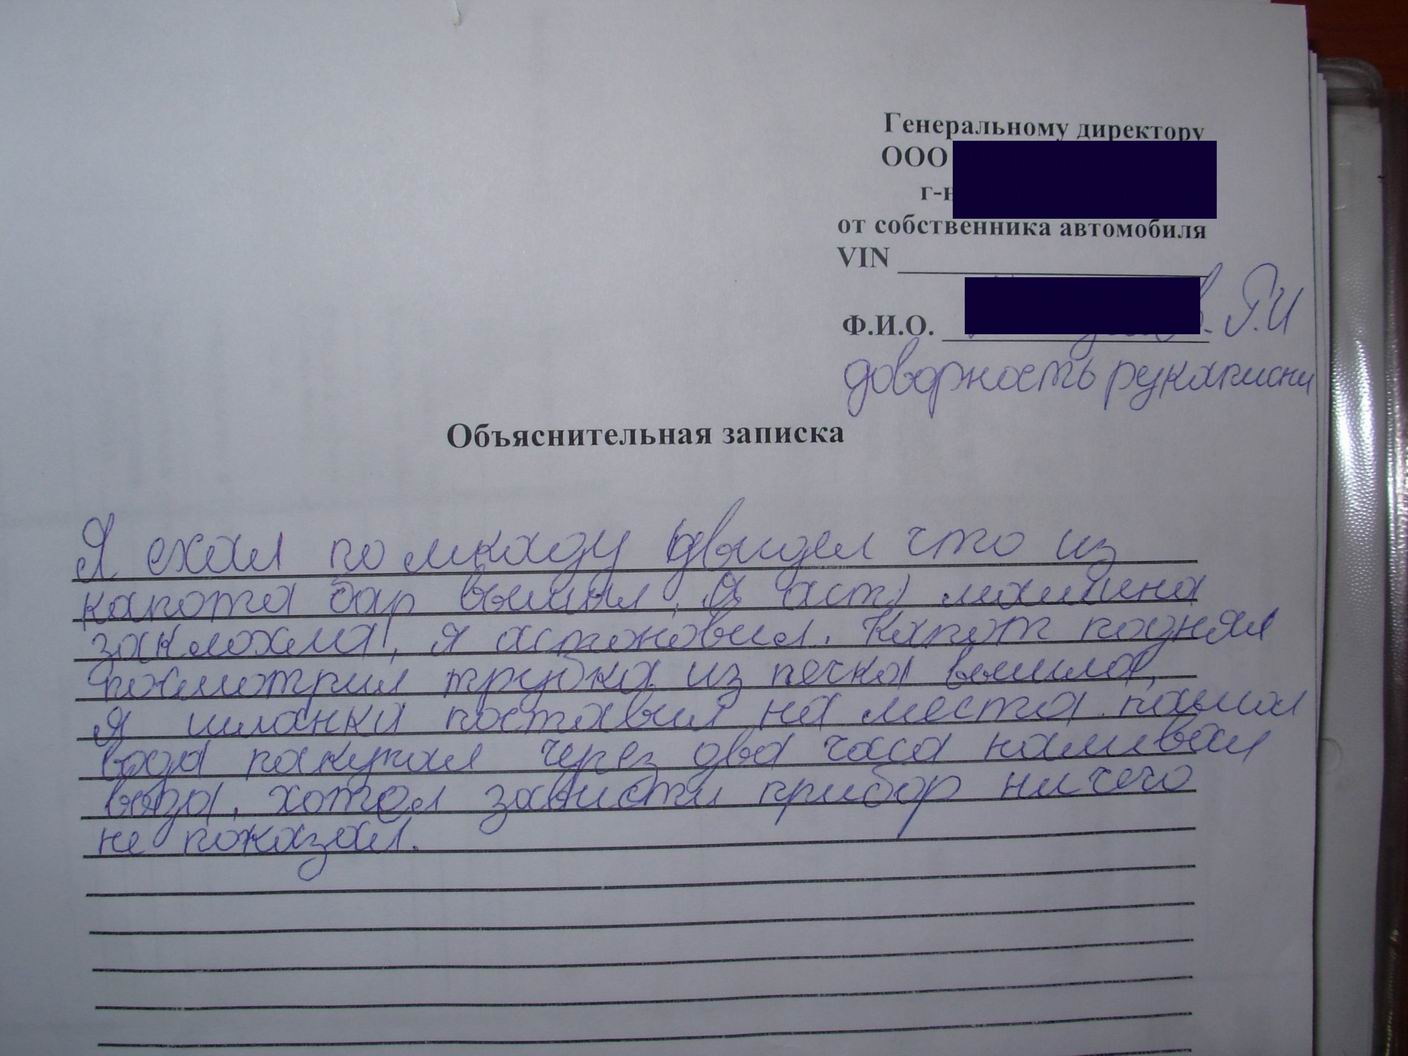 Генеральному директору
ООО
г-н
от собственника автомобиля
VIN
Ф.И.О. Г.И
доворность рукаписни
Объяснительная записка
Я ехал по мкаду увидел что из
капота бар вышыл, я машина
заклохла, я астоновил. Капот поднял
посмотрил трубка из печка вышла,
я шланки поставил на места пашол
вада пакупал через два часа наливал
вада, хотел зависти прибор ничего
не показал.